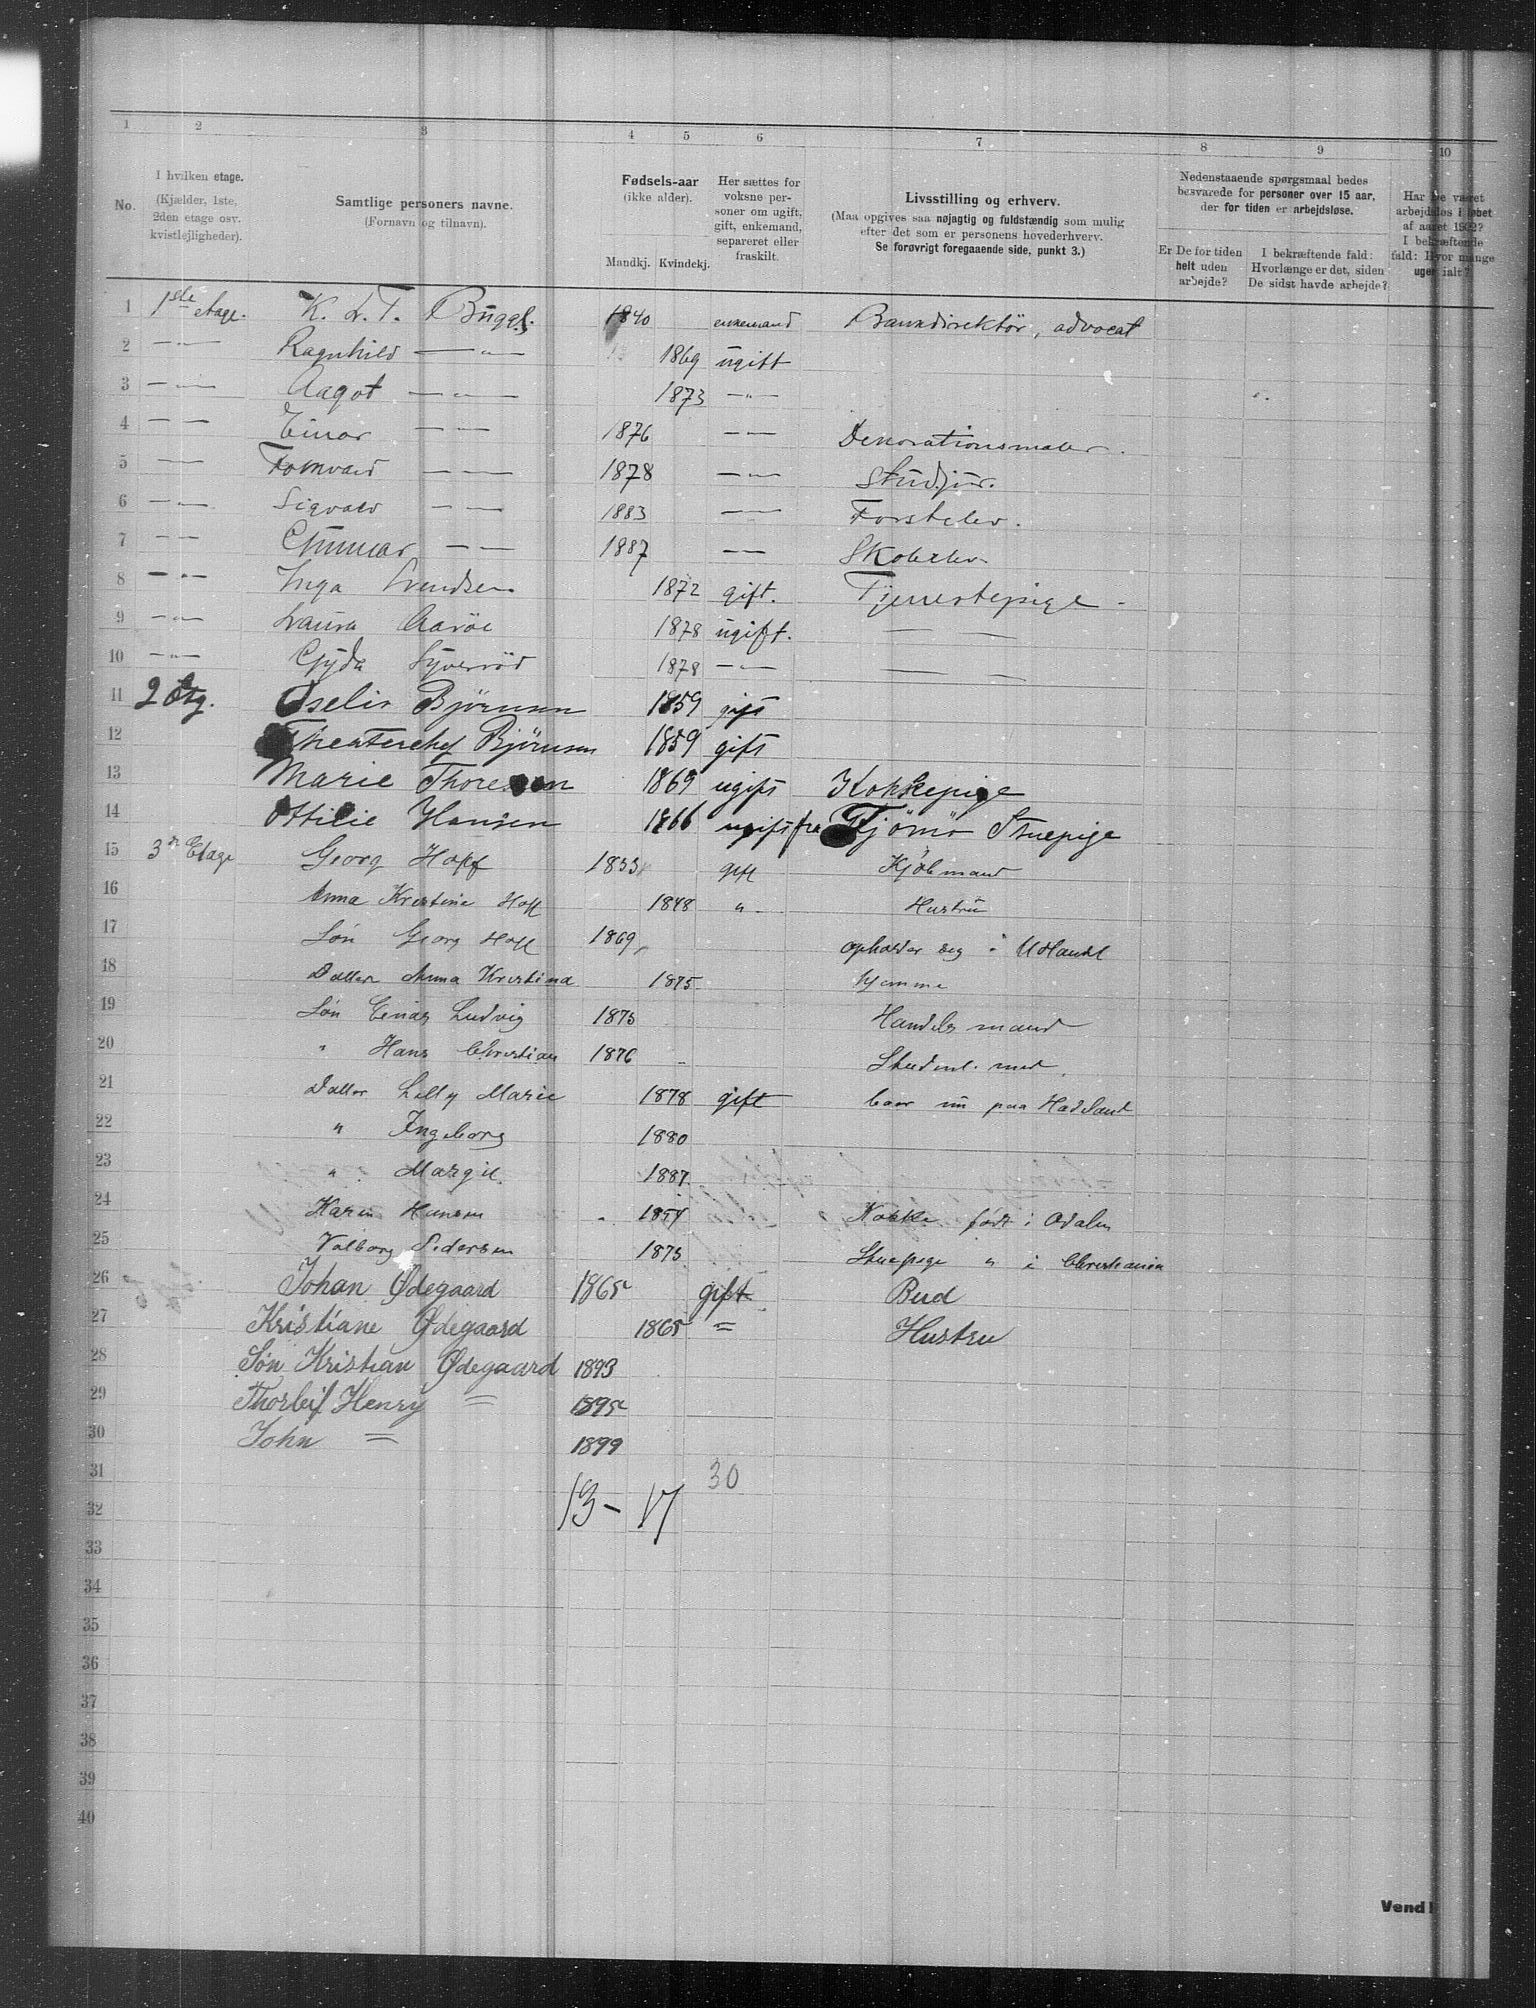 1 2 3 4 5 6 7 8 9 10
No.
I hvilken etage. (Kjælder, 1ste, 2den etage osv. kvistlejligheder).
Samtlige personers navne. (Fornavn og tilnavn).
Fødsels-aar (ikke alder). Mandkj. Kvindekj.
Her sættes for voksne personer om ugift, gift, enkemand, separeret eller fraskilt.
Livsstilling og erhverv. (Maa opgives saa nøjagtig og fuldstændig som mulig efter det som er personens hovederhverv. Se forøvrigt foregaaende side, punkt 3.)
Nedenstaaende spørgsmaal bedes besvarede for personer over 15 aar, der for tiden er arbejdsløse.
Er De for tiden helt uden arbejde?
I bekræftende fald: Hvorlænge er det, siden De sidst havde arbejde?
Har De været arbejdsløs i løbet af aaret 1902? I bekræftende fald: Hvor mange uger ialt?
1 1ste etage. K. L. T. Bugge. 1840 enkemand Bankdirektör, advocat
2 — „ — Ragnhild — „ — 1869 ugift
3 — „ — Aagot — „ — 1873 — „ —
4 — — Einar — — 1876 — — Dekorationsmaler.
5 — — — — 1878 — „ — Stud. jur.
6 — „ — Sigvald — — 1883 — — Forstelev.
7 — — Gunnar — — 1887 — — Skoleelev
8 — „ — Inga Svendsen 1872 gift. Tjenestepige.
9 — „ — Laura Aaröe 1878 ugift. — —
10 — „ — Gyda Syverröd 1878 — „ — — —
11 2 Etg. Björnson 1859 gift
12 Theaterchef Björnson 1859 gift
13 Marie Thoresen 1869 ugift Kokkepige
14 Ottilie Hansen 1866 ugift fra Tjömö Stuepige
15 3die Etage Georg Hoff 1833 gift Kjöbmand
16 Anna Kristine Hoff 1848 „ Hustrü
17 Sön Georg Hoff 1869 opholder seg i Utlandt
18 Datter Anna Kristina 1875 hjemme
19 Sön Einar Ludvig 1875 Handelsmand
20 „ Hans Christian 1876 Student. med.
21 Datter Lilly Marie 1878 gift boer nu paa Hadeland
22 „ Ingeborg 1880
23 „ Margit. 1887
24 Karen Hansen 1857 Kokke födt i Odalen
25 Valborg Pedersen 1875 Stuepige „ i Christiania
26 Johan Ødegaard 1865 gift Bud
27 Kristiane Ødegaard 1865 = Hustru
28 Søn Kristian Ødegaard 1893
29 Thorleif Henry = 1895
30 John = 1899
31 30
32 13 – 17
33
34
35
36
37
38
39
40
Vend!